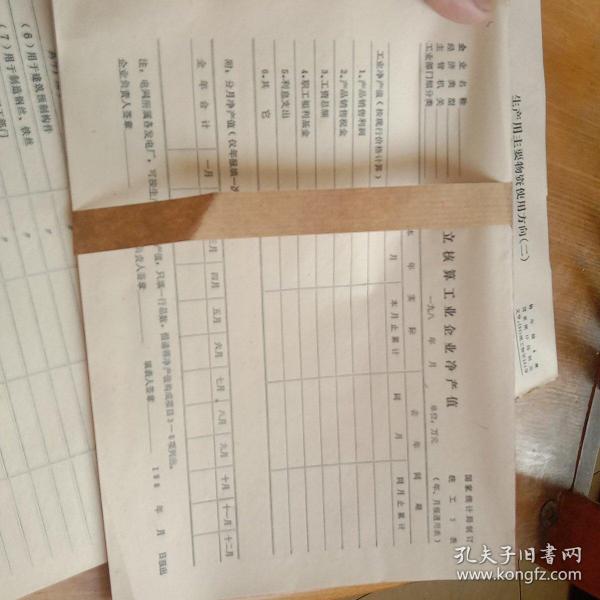 立核算工业企业净产值
一九八 年 月
单位：万元
国家统计局制订
统工 3 表
(年、月报通用表)
企业名称
经济类型
主管机关
工业部门细分类
年 实 际
去 年 同 期
月
本月止累计
同 月
同月止累计
工业净产值 (按现行价格计算)
1.产品销售利润
2.产品销售税金
3.工资总额
4.职工福利基金
5.利息支出
6.其 它
附：分月净产值 (仅年报填
全年合计
一月
三月
四月
五月
六月
七月
八月
九月
十月
十一月
十二月
注：电网所属各发电厂，可按生
产值，只填一行总数，但请将净产值构成项目3—6项列出。
企业负责人签章
负责人签章
填表人签章
198 年 月 日报出
生产用主要物资使用方向(二)
(6)用于建筑预制构件
(7)用于制造钢丝、铁丝
〃
〃
孔夫子旧书网
www.kongfz.com